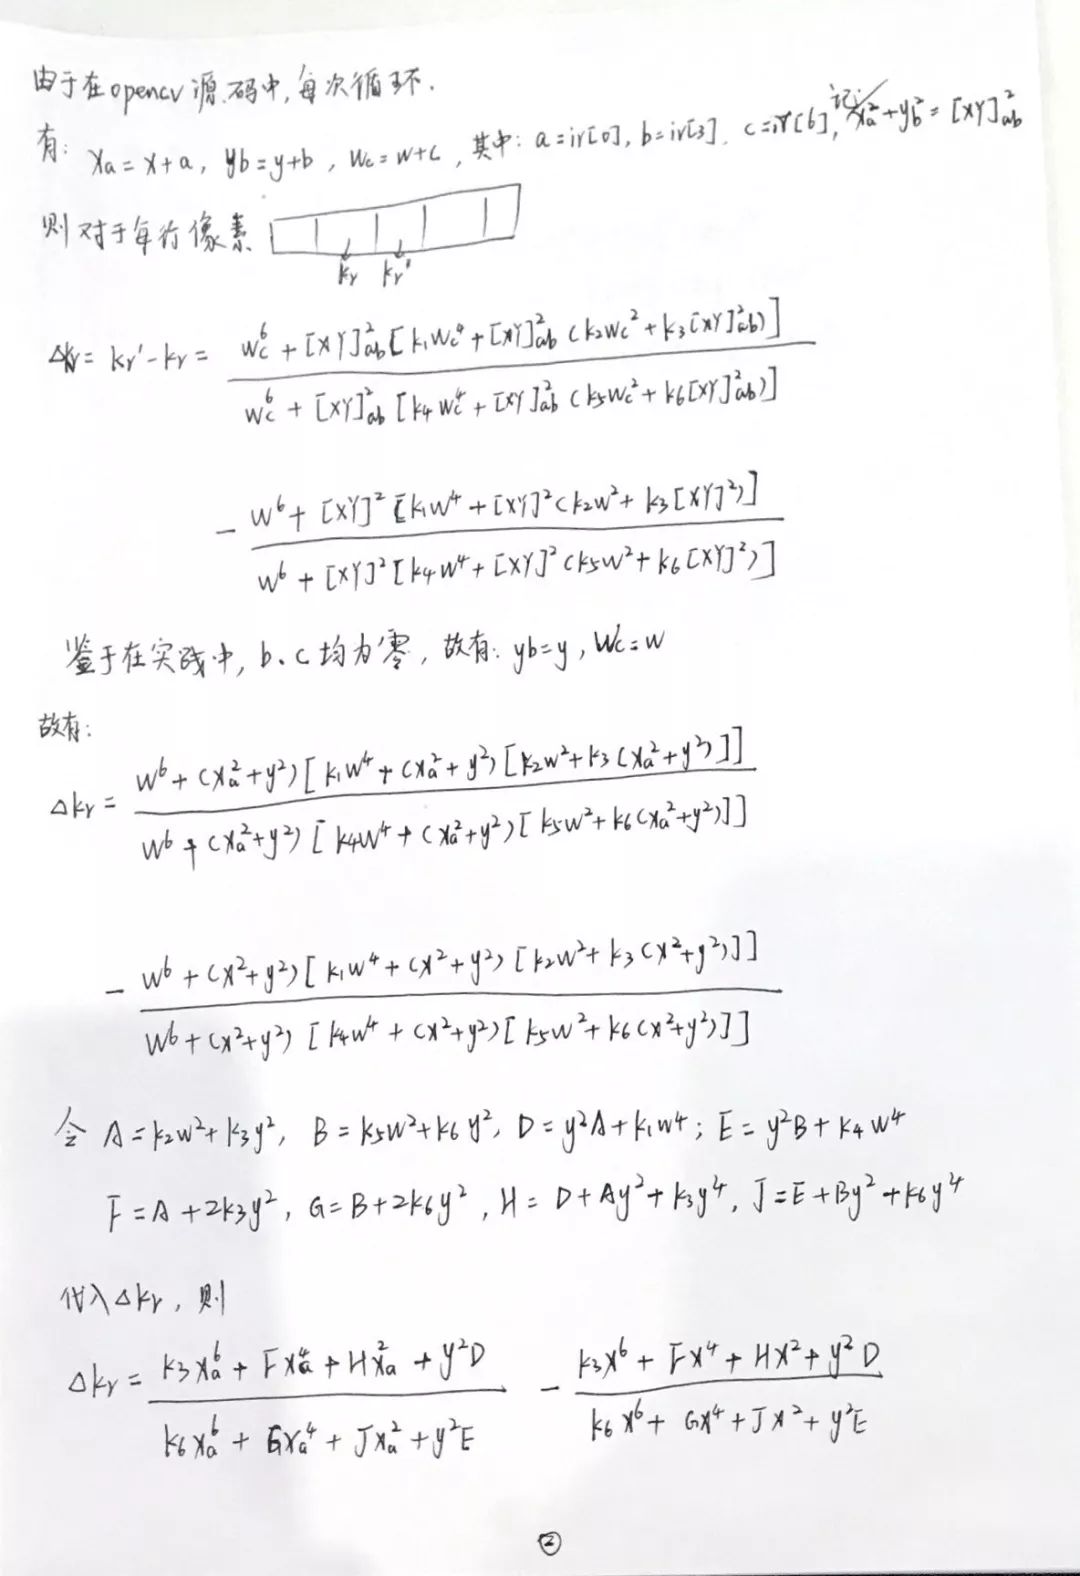 由于在opencv源码中,每次循环.
有: Xa=X+a, yb=y+b, Wc=W+c, 其中: a=ir[0], b=ir[3], c=ir[6], 记: Xa²+yb²=[XY]²ab
则对于每行像素
kr kr'
Δkr = kr'-kr = (Wc⁶+[XY]²ab[k₁Wc⁴+[XY]²ab(k₂Wc²+k₃[XY]²ab)]
Wc⁶+[XY]²ab[k₄Wc⁴+[XY]²ab(k₅Wc²+k₆[XY]²ab)]
- W⁶+[XY]²[k₁W⁴+[XY]²(k₂W²+k₃[XY]²)]
W⁶+[XY]²[k₄W⁴+[XY]²(k₅W²+k₆[XY]²)]
鉴于在实践中, b、c均为零, 故有: yb=y, Wc=W
故有:
Δkr = W⁶+(Xa²+y²)[k₁W⁴+(Xa²+y²)[k₂W²+k₃(Xa²+y²)]]
W⁶+(Xa²+y²)[k₄W⁴+(Xa²+y²)[k₅W²+k₆(Xa²+y²)]]
- W⁶+(X²+y²)[k₁W⁴+(X²+y²)[k₂W²+k₃(X²+y²)]]
W⁶+(X²+y²)[k₄W⁴+(X²+y²)[k₅W²+k₆(X²+y²)]]
令 A=k₂W²+k₃y², B=k₅W²+k₆y², D=y²A+k₁W⁴; E=y²B+k₄W⁴
F=A+2k₃y², G=B+2k₆y², H=D+Ay²+k₃y⁴, J=E+By²+k₆y⁴
代入Δkr, 则
Δkr = k₃Xa⁶+FXa⁴+HXa²+y²D - k₃X⁶+FX⁴+HX²+y²D
k₆Xa⁶+GXa⁴+JXa²+y²E k₆X⁶+GX⁴+JX²+y²E
②